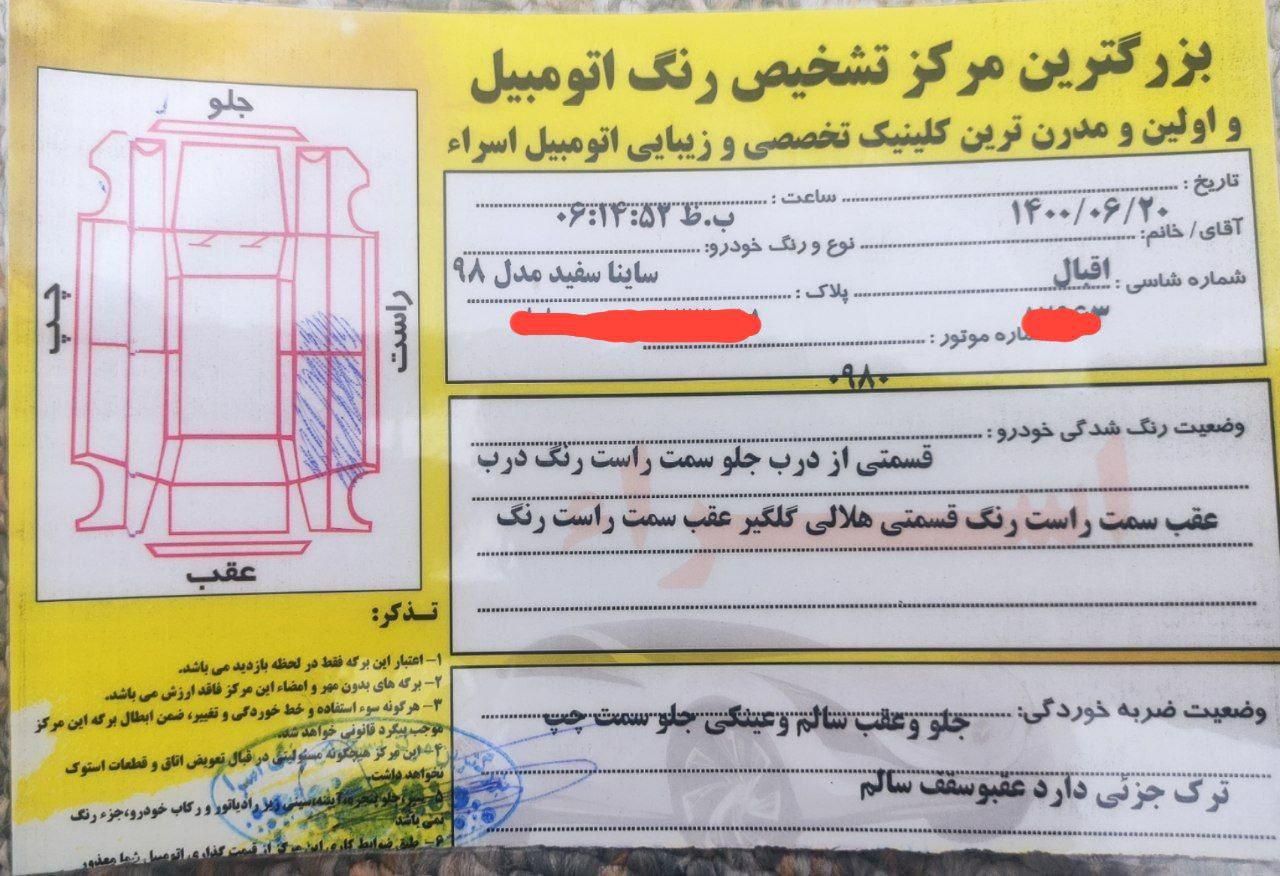 بزرگترین مرکز تشخیص رنگ اتومبیل
و اولین و مدرن ترین کلینیک تخصصی و زیبایی اتومبیل اسراء
تاریخ : ۱۴۰۰/۰۶/۲۰ ساعت : ۰۶:۱۴:۵۲ ب.ظ
آقای/ خانم: اقبال نوع و رنگ خودرو: ساینا سفید مدل ۹۸
شماره شاسی : پلاک :
شماره موتور : ۰۹۸۰
وضعیت رنگ شدگی خودرو :
قسمتی از درب جلو سمت راست رنگ درب
عقب سمت راست رنگ قسمتی هلالی گلگیر عقب سمت راست رنگ
اسراء
وضعیت ضربه خوردگی: جلو وعقب سالم وعینکی جلو سمت چپ
ترک جزئی دارد عقبوسقف سالم
جلو
چپ
راست
عقب
تـذکر:
۱- اعتبار این برگه فقط در لحظه بازدید می باشد.
۲- برگه های بدون مهر و امضاء این مرکز فاقد ارزش می باشد.
۳- هرگونه سوء استفاده و خط خوردگی و تغییر، ضمن ابطال برگه این مرکز
موجب پیگرد قانونی خواهد شد.
۴- این مرکز هیچگونه مسئولیتی در قبال تعویض اتاق و قطعات استوک
نخواهد داشت.
۵- سپر، جلو پنجره، آینه، سینی زیر رادیاتور و رکاب خودرو، جزء رنگ
نمی باشد
۶- طبق ضوابط کاری این مرکز از قیمت گذاری اتومبیل شما معذور